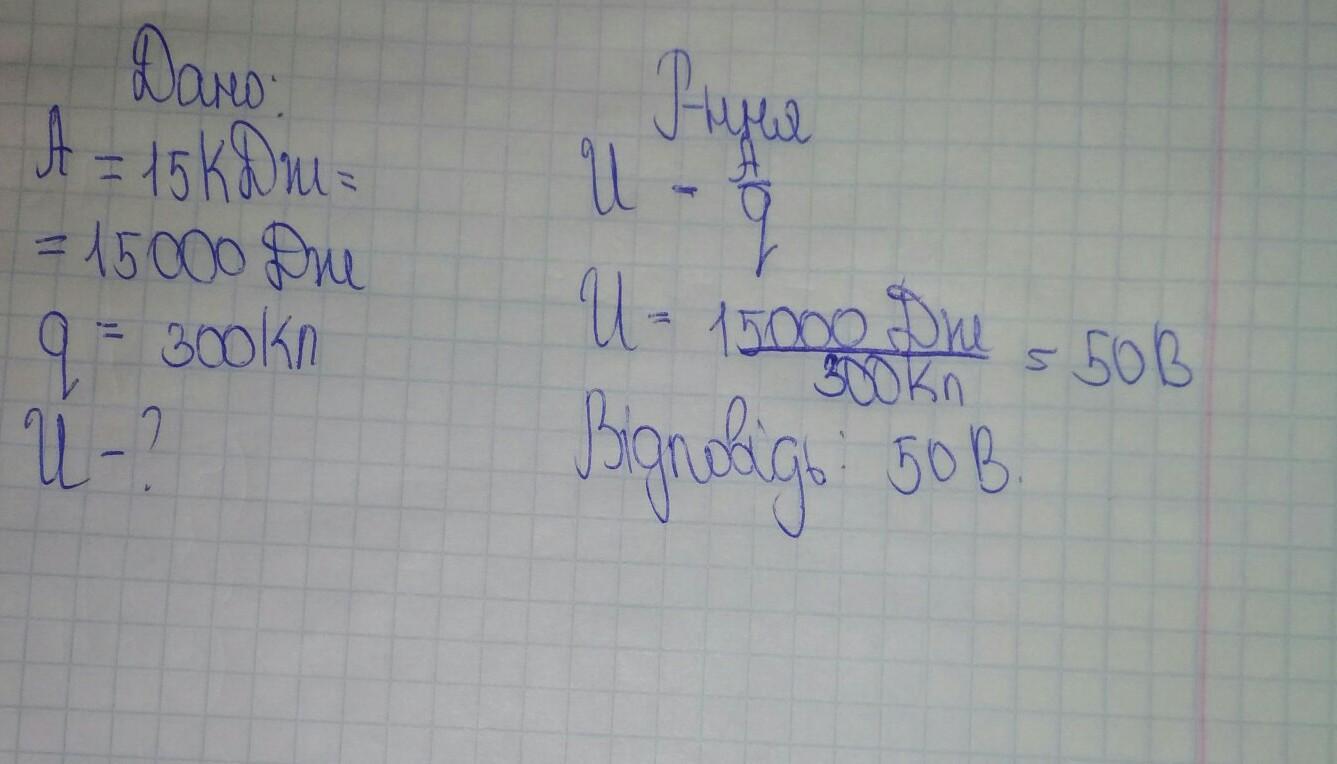 Дано:
A = 15КДж =
= 15000 Дж
q = 300Кл
U - ?
Р-ння
U - A/q
U = 15000 Дж / 300Кл = 50 В
Відповідь: 50 В.